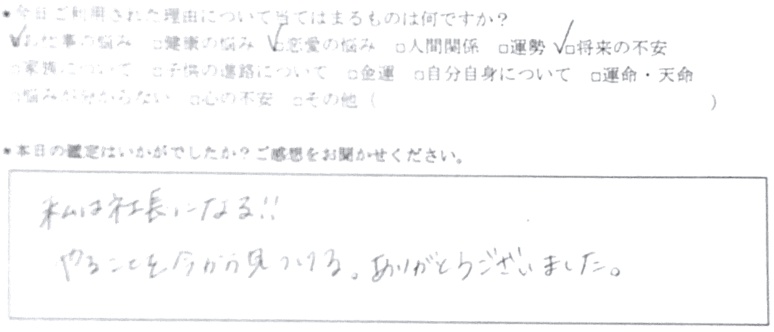 *今日ご利用された理由について当てはまるものは何ですか?
☑お仕事の悩み □健康の悩み ☑恋愛の悩み □人間関係 □運勢 ☑将来の不安
□家族について □子供の進路について □金運 □自分自身について □運命・天命
□悩みが分からない □心の不安 □その他( )
*本日の鑑定はいかがでしたか?ご感想をお聞かせください。
私は社長になる!!
やることを今から見つける。ありがとうございました。